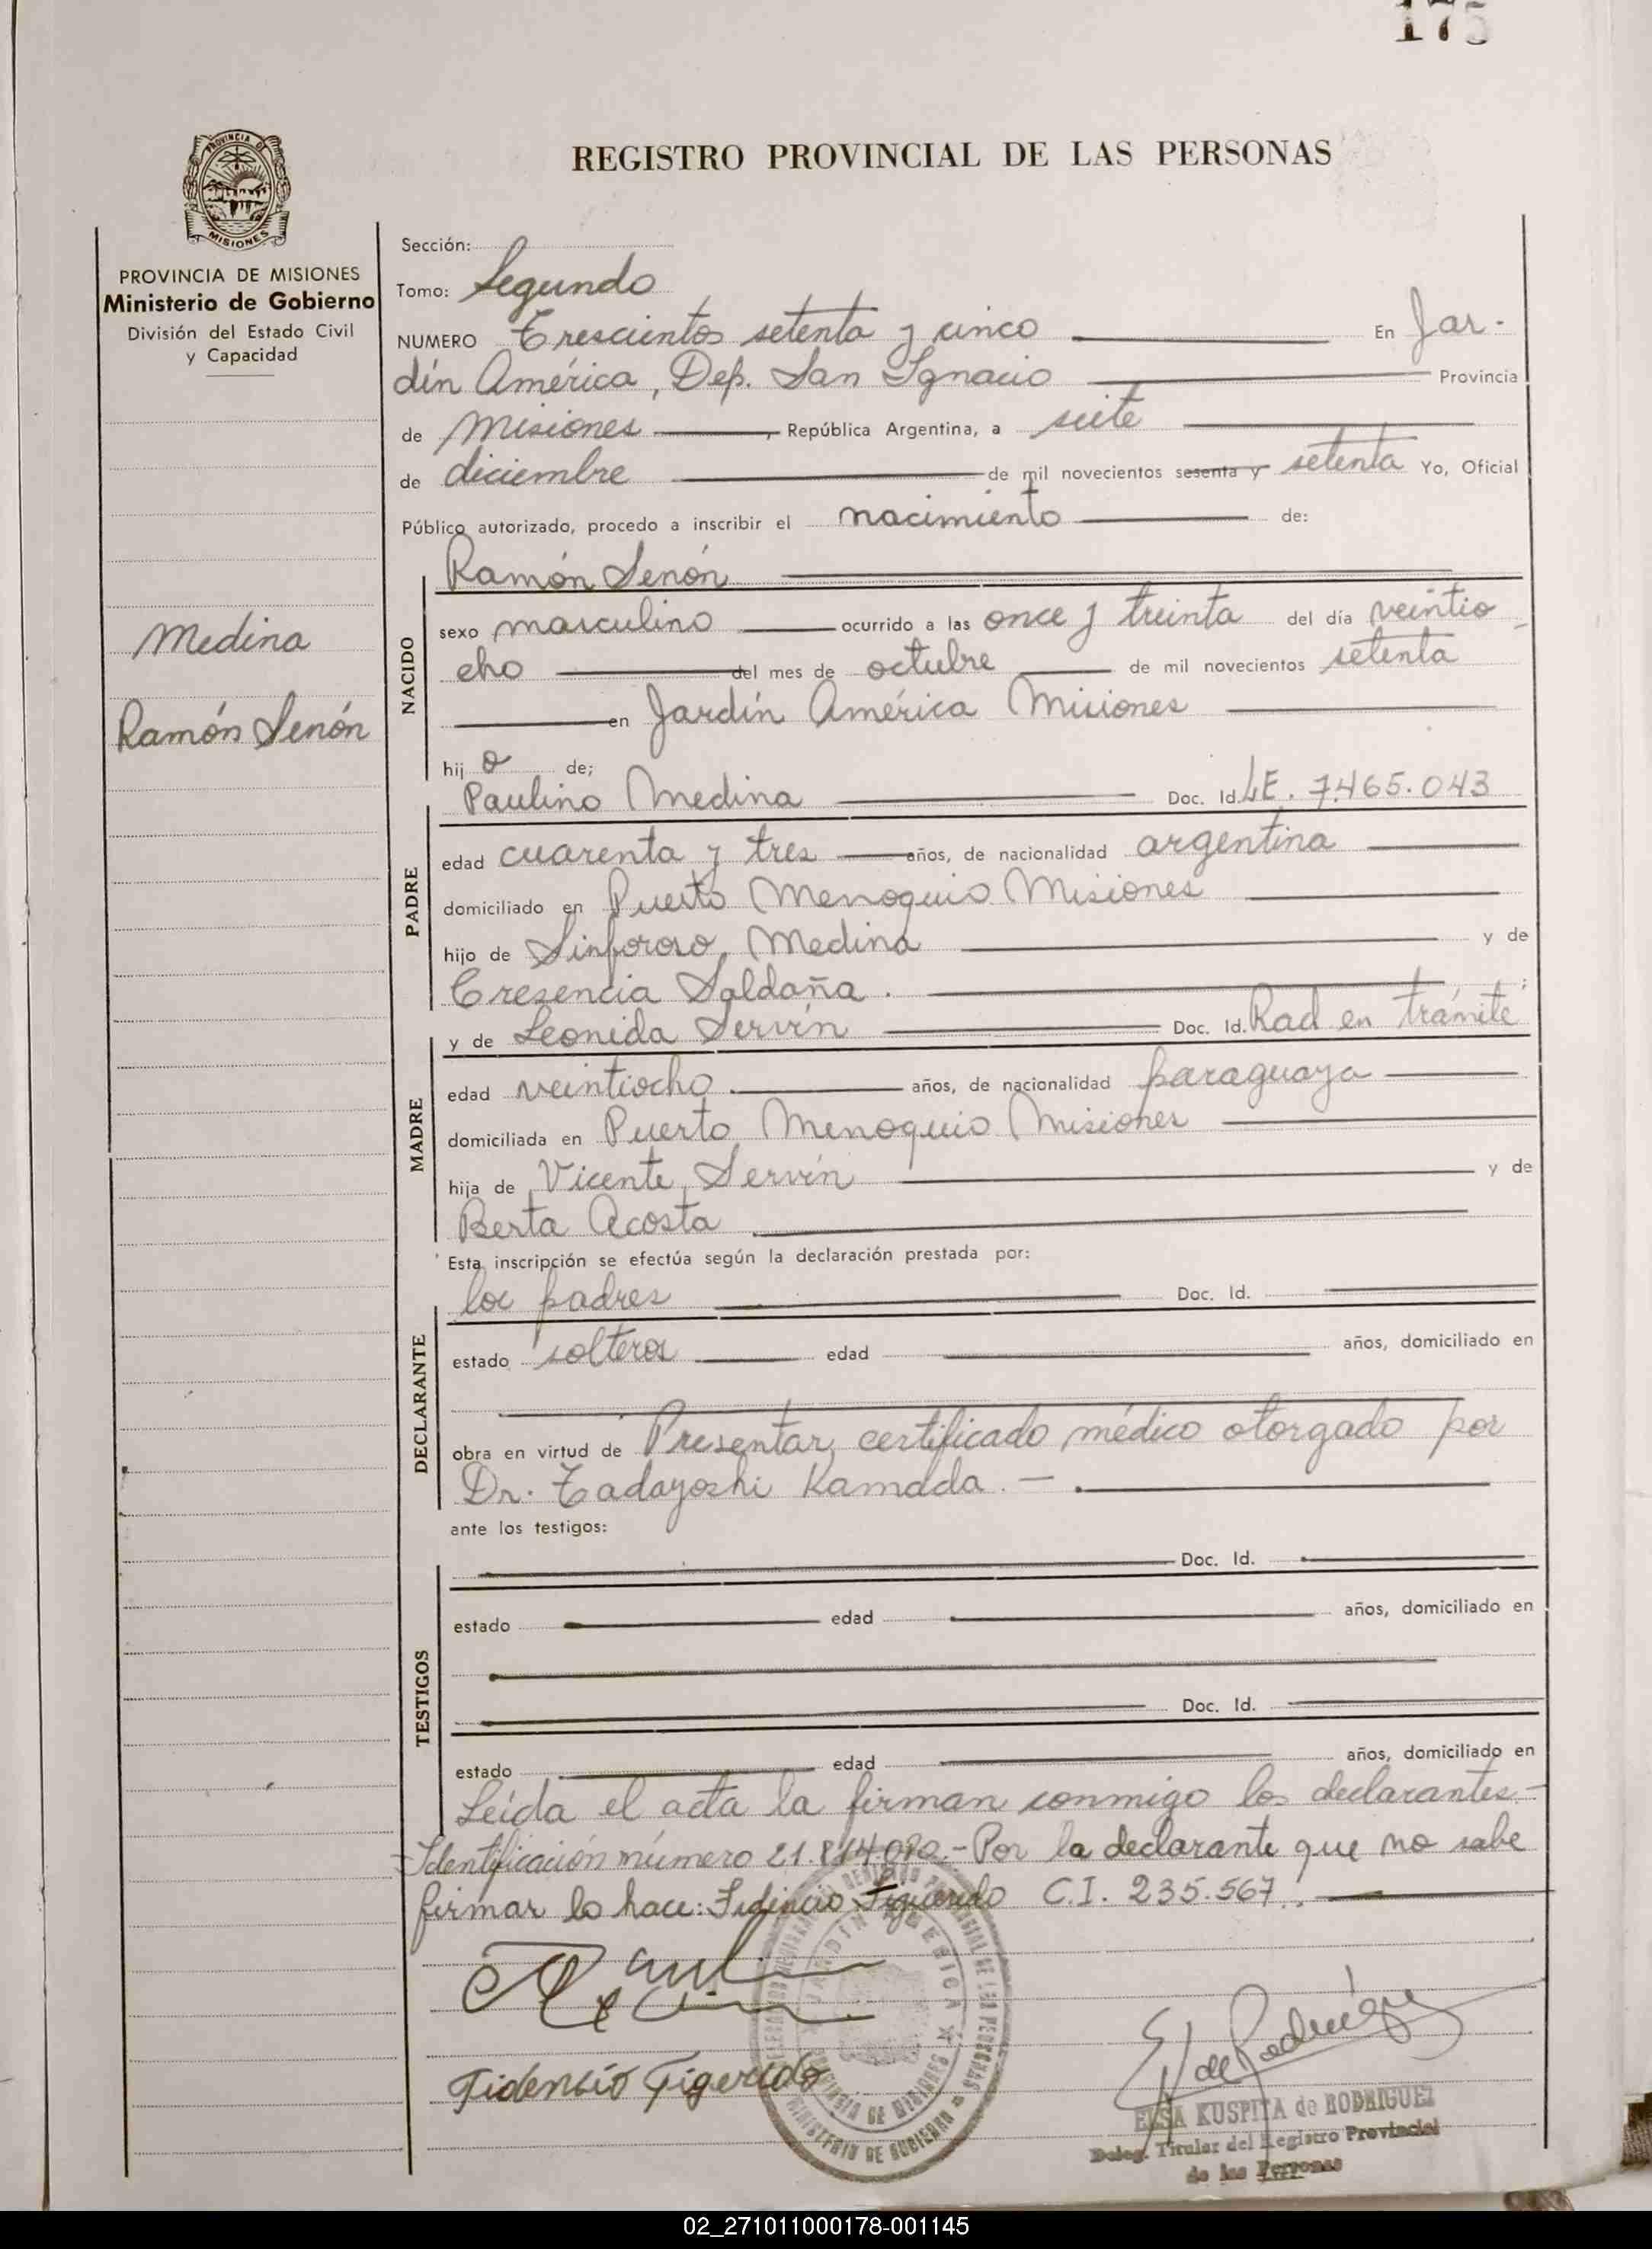 175
REGISTRO PROVINCIAL DE LAS PERSONAS
PROVINCIA DE MISIONES
Ministerio de Gobierno
División del Estado Civil
y Capacidad
Medina
Ramón Senón
Sección:
Tomo: Segundo
NUMERO Trescientos setenta y cinco En Jar-
dín América, Dep. San Ignacio Provincia
de Misiones, República Argentina, a siete
de diciembre de mil novecientos sesenta y setenta Yo, Oficial
Público autorizado, procedo a inscribir el nacimiento de:
NACIDO
Ramón Senón
sexo masculino ocurrido a las once y treinta del día veintio
cho del mes de octubre de mil novecientos setenta
en Jardín América Misiones
hijo de;
PADRE
Paulino Medina Doc. Id. LE. 7.465.043
edad cuarenta y tres años, de nacionalidad argentina
domiciliado en Puerto Menoquio Misiones
hijo de Sinforoso Medina y de
Cresencia Saldaña.
MADRE
y de Leonida Servín Doc. Id. Rad en trámite
edad veintiocho años, de nacionalidad paraguaya
domiciliada en Puerto Menoquio Misiones
hija de Vicente Servín y de
Berta Acosta
Esta inscripción se efectúa según la declaración prestada por:
DECLARANTE
los padres Doc. Id.
estado solteros edad años, domiciliado en
obra en virtud de Presentar certificado médico otorgado por
Dr. Tadayoshi Kamada.
ante los testigos:
TESTIGOS
Doc. Id.
estado edad años, domiciliado en
Doc. Id.
estado edad años, domiciliado en
Leída el acta la firman conmigo los declarantes.-
Identificación número 21. -Por la declarante que no sabe
firmar lo hace: Fidencio Figueredo C.I. 235.567.
Fidencio Figeredo
E K de Rodríguez
ELSA KUSPITA de RODRIGUEZ
Deleg. Titular del Registro Provincial
de las Personas
02_271011000178-001145